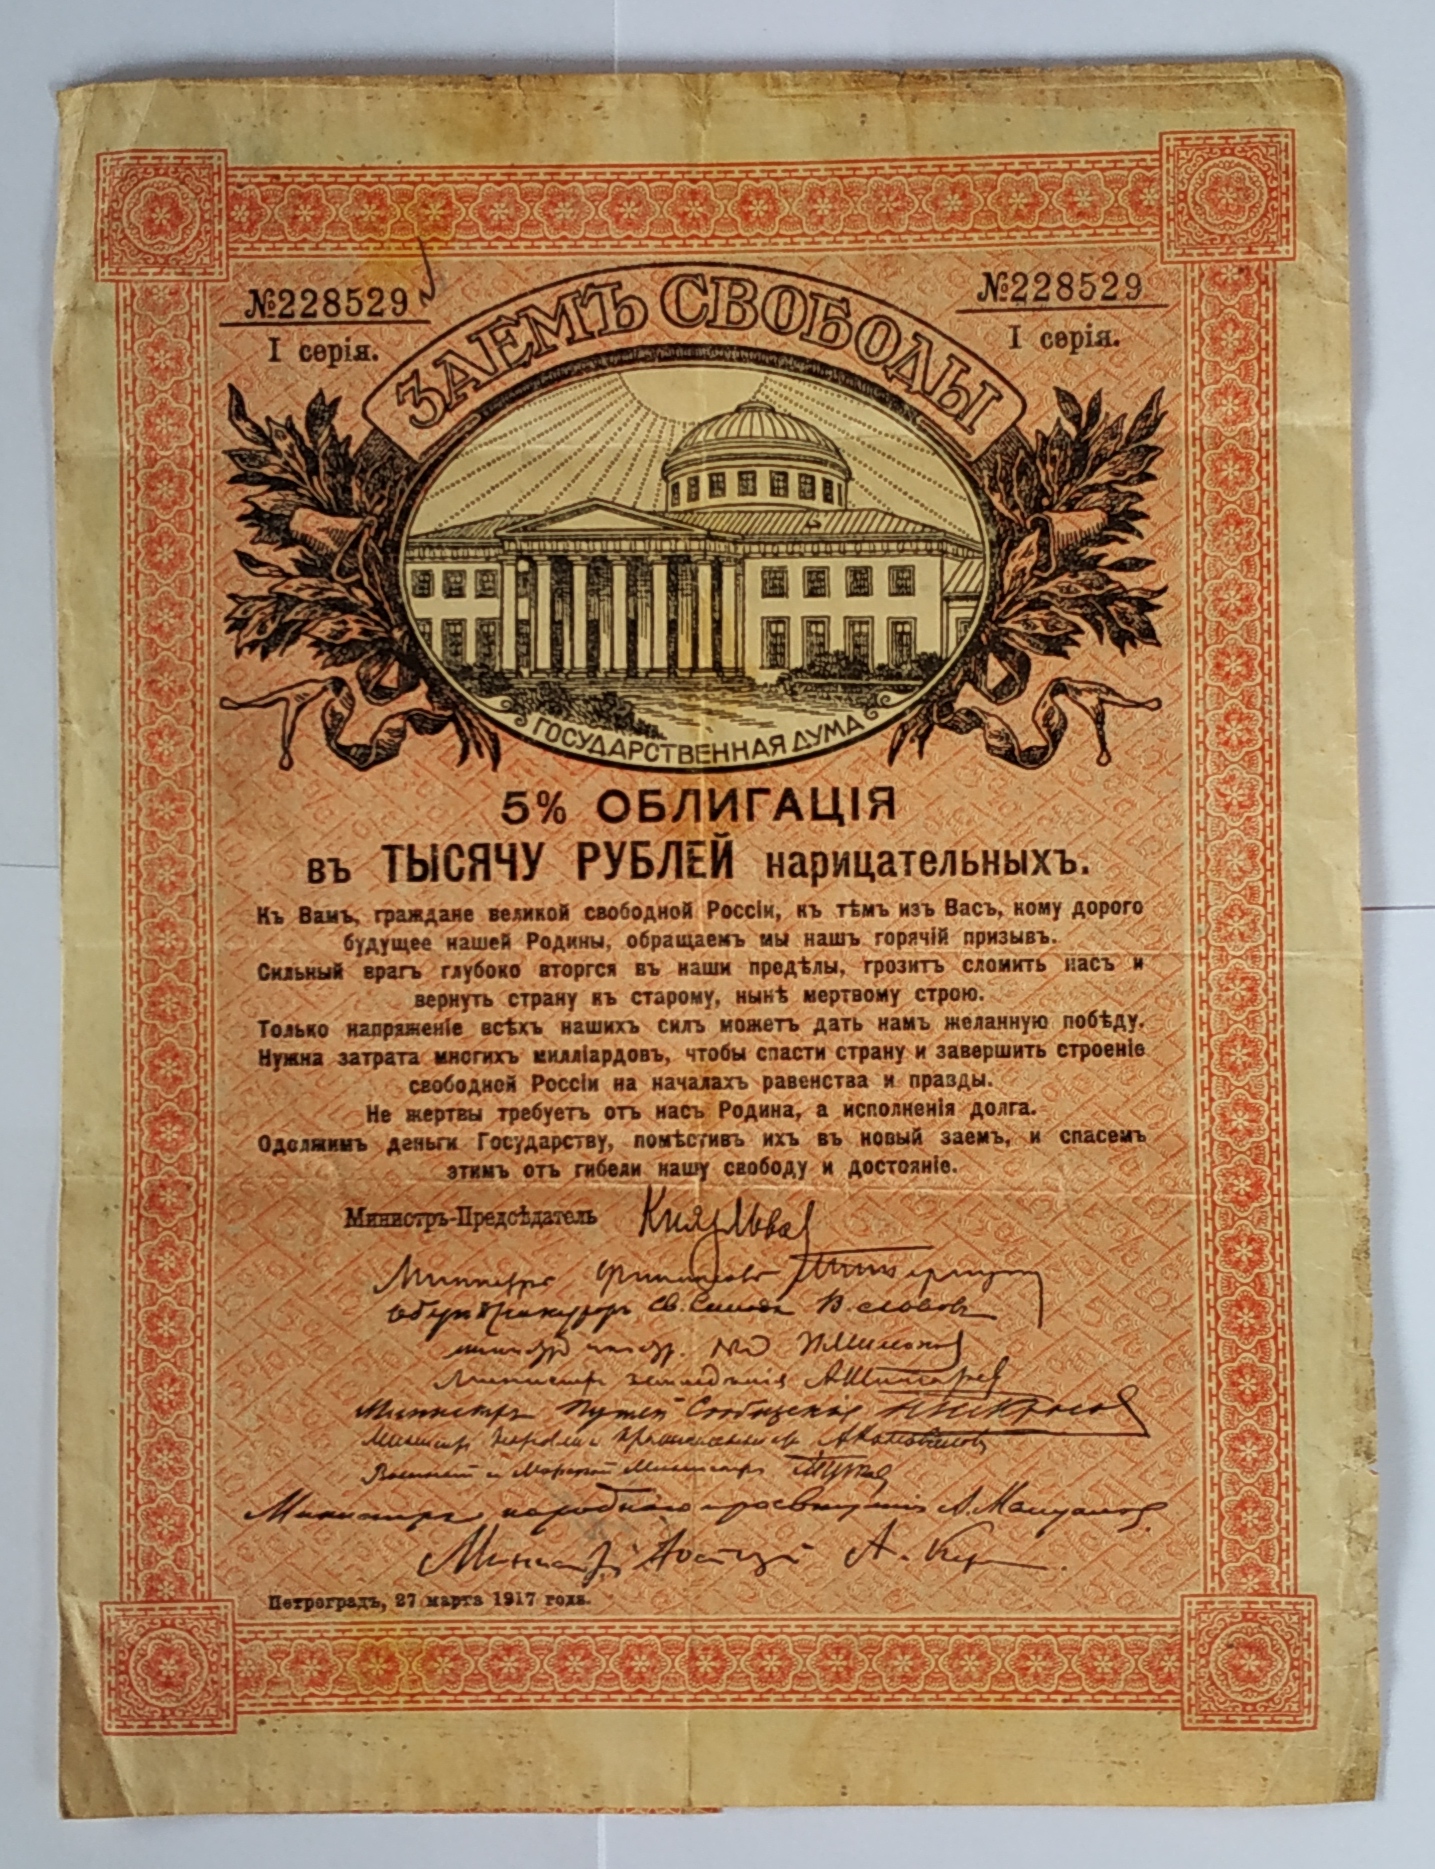 №228529
№228529
I серія.
I серія.
ЗАЕМЪ СВОБОДЫ
ГОСУДАРСТВЕННАЯ ДУМА
5% ОБЛИГАЦІЯ
въ ТЫСЯЧУ РУБЛЕЙ нарицательныхъ.
Къ Вамъ, граждане великой свободной Россіи, къ тѣмъ изъ Васъ, кому дорого
будущее нашей Родины, обращаемъ мы нашъ горячій призывъ.
Сильный врагъ глубоко вторгся въ наши предѣлы, грозитъ сломить насъ и
вернуть страну къ старому, нынѣ мертвому строю.
Только напряженіе всѣхъ нашихъ силъ можетъ дать намъ желанную побѣду.
Нужна затрата многихъ милліардовъ, чтобы спасти страну и завершить строеніе
свободной Россіи на началахъ равенства и правды.
Не жертвы требуетъ отъ насъ Родина, а исполненія долга.
Одолжимъ деньги Государству, помѣстивъ ихъ въ новый заемъ, и спасемъ
этимъ отъ гибели нашу свободу и достояніе.
Министръ-Предсѣдатель Князь Львов
Министръ Финансовъ
Оберъ Прокуроръ Св. Синода В. Львовъ
Министръ земледѣлія А Шингарев
Министръ Путей Сообщенія
Военный и Морской Министръ
Министръ народнаго просвѣщенія А. Мануйлов
Министр Юстиціи А. Кер
Петроградъ, 27 марта 1917 года.